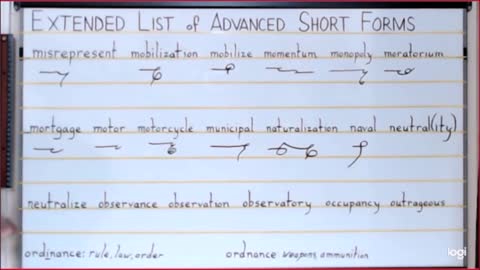 EXTENDED LIST of ADVANCED SHORT FORMS
misrepresent mobilization mobilize momentum monopoly moratorium
mortgage motor motorcycle municipal naturalization naval neutral(ity)
neutralize observance observation observatory occupancy outrageous
ordinance: rule, law, order ordnance weapons, ammunition
logi